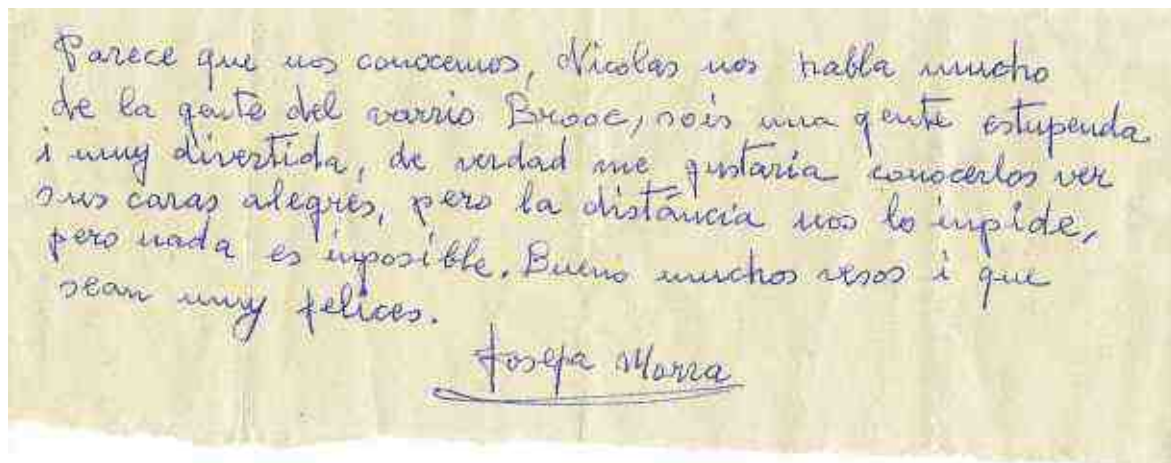 Parece que nos conocemos, Nicolas nos habla mucho
de la gente del varrio Brooc, sois una gente estupenda
i muy divertida, de verdad me gustaria conocerlos ver
sus caras alegres, pero la distáncia nos lo inpide,
pero nada es inposible. Bueno muchos vesos i que
sean muy felices.
Josefa